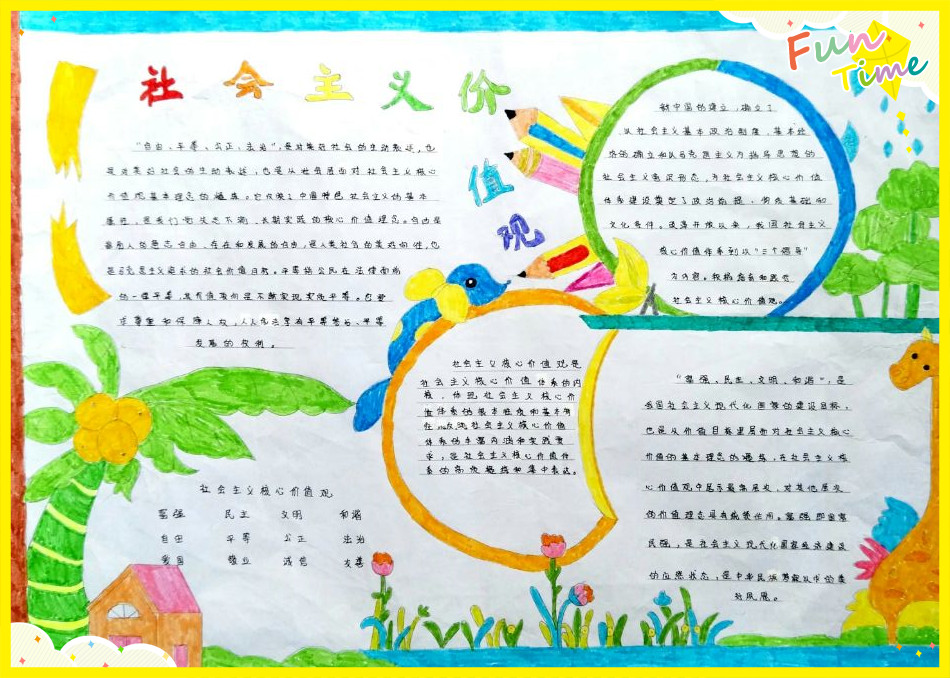 Fun
Time
社会主义价
值观
"自由、平等、公正、法治",是对美好社会的生动表述,也
是对美好社会的生动表述,也是从社会层面对社会主义核心
价值观基本理念的凝练。它反映了中国特色社会主义的基本
属性,是我们党矢志不渝、长期实践的核心价值理念。自由是
指人的意志自由、存在和发展的自由,是人类社会的美好向往,也
是马克思主义追求的社会价值目标。平等指公民在法律面前
的一律平等,其价值取向是不断实现实质平等。它要
求尊重和保障人权,人人依法享有平等参与、平等
发展的权利。
新中国的建立,确立了
以社会主义基本政治制度、基本经
济的确立和以马克思主义为指导思想的
社会主义意识形态,为社会主义核心价值
体系建设奠定了政治前提、物质基础和
文化条件。改革开放以来,我国社会主义
核心价值体系到以"三个倡导"
为内容,积极培育和践行
社会主义核心价值观。
社会主义核心价值观是
社会主义核心价值体系的内
核,体现社会主义核心价
值体系的根本性质和基本特
征,反映社会主义核心价值
体系的丰富内涵和实践要
求,是社会主义核心价值体
系的高度凝练和集中表达。
"富强、民主、文明、和谐",是
我国社会主义现代化国家的建设目标,
也是从价值目标层面对社会主义核心
价值观基本理念的凝练,在社会主义核
心价值观中居于最高层次,对其他层次
的价值理念具有统领作用。富强即国富
民强,是社会主义现代化国家经济建设
的应然状态,是中华民族梦寐以求的美
好夙愿。
社会主义核心价值观
富强 民主 文明 和谐
自由 平等 公正 法治
爱国 敬业 诚信 友善